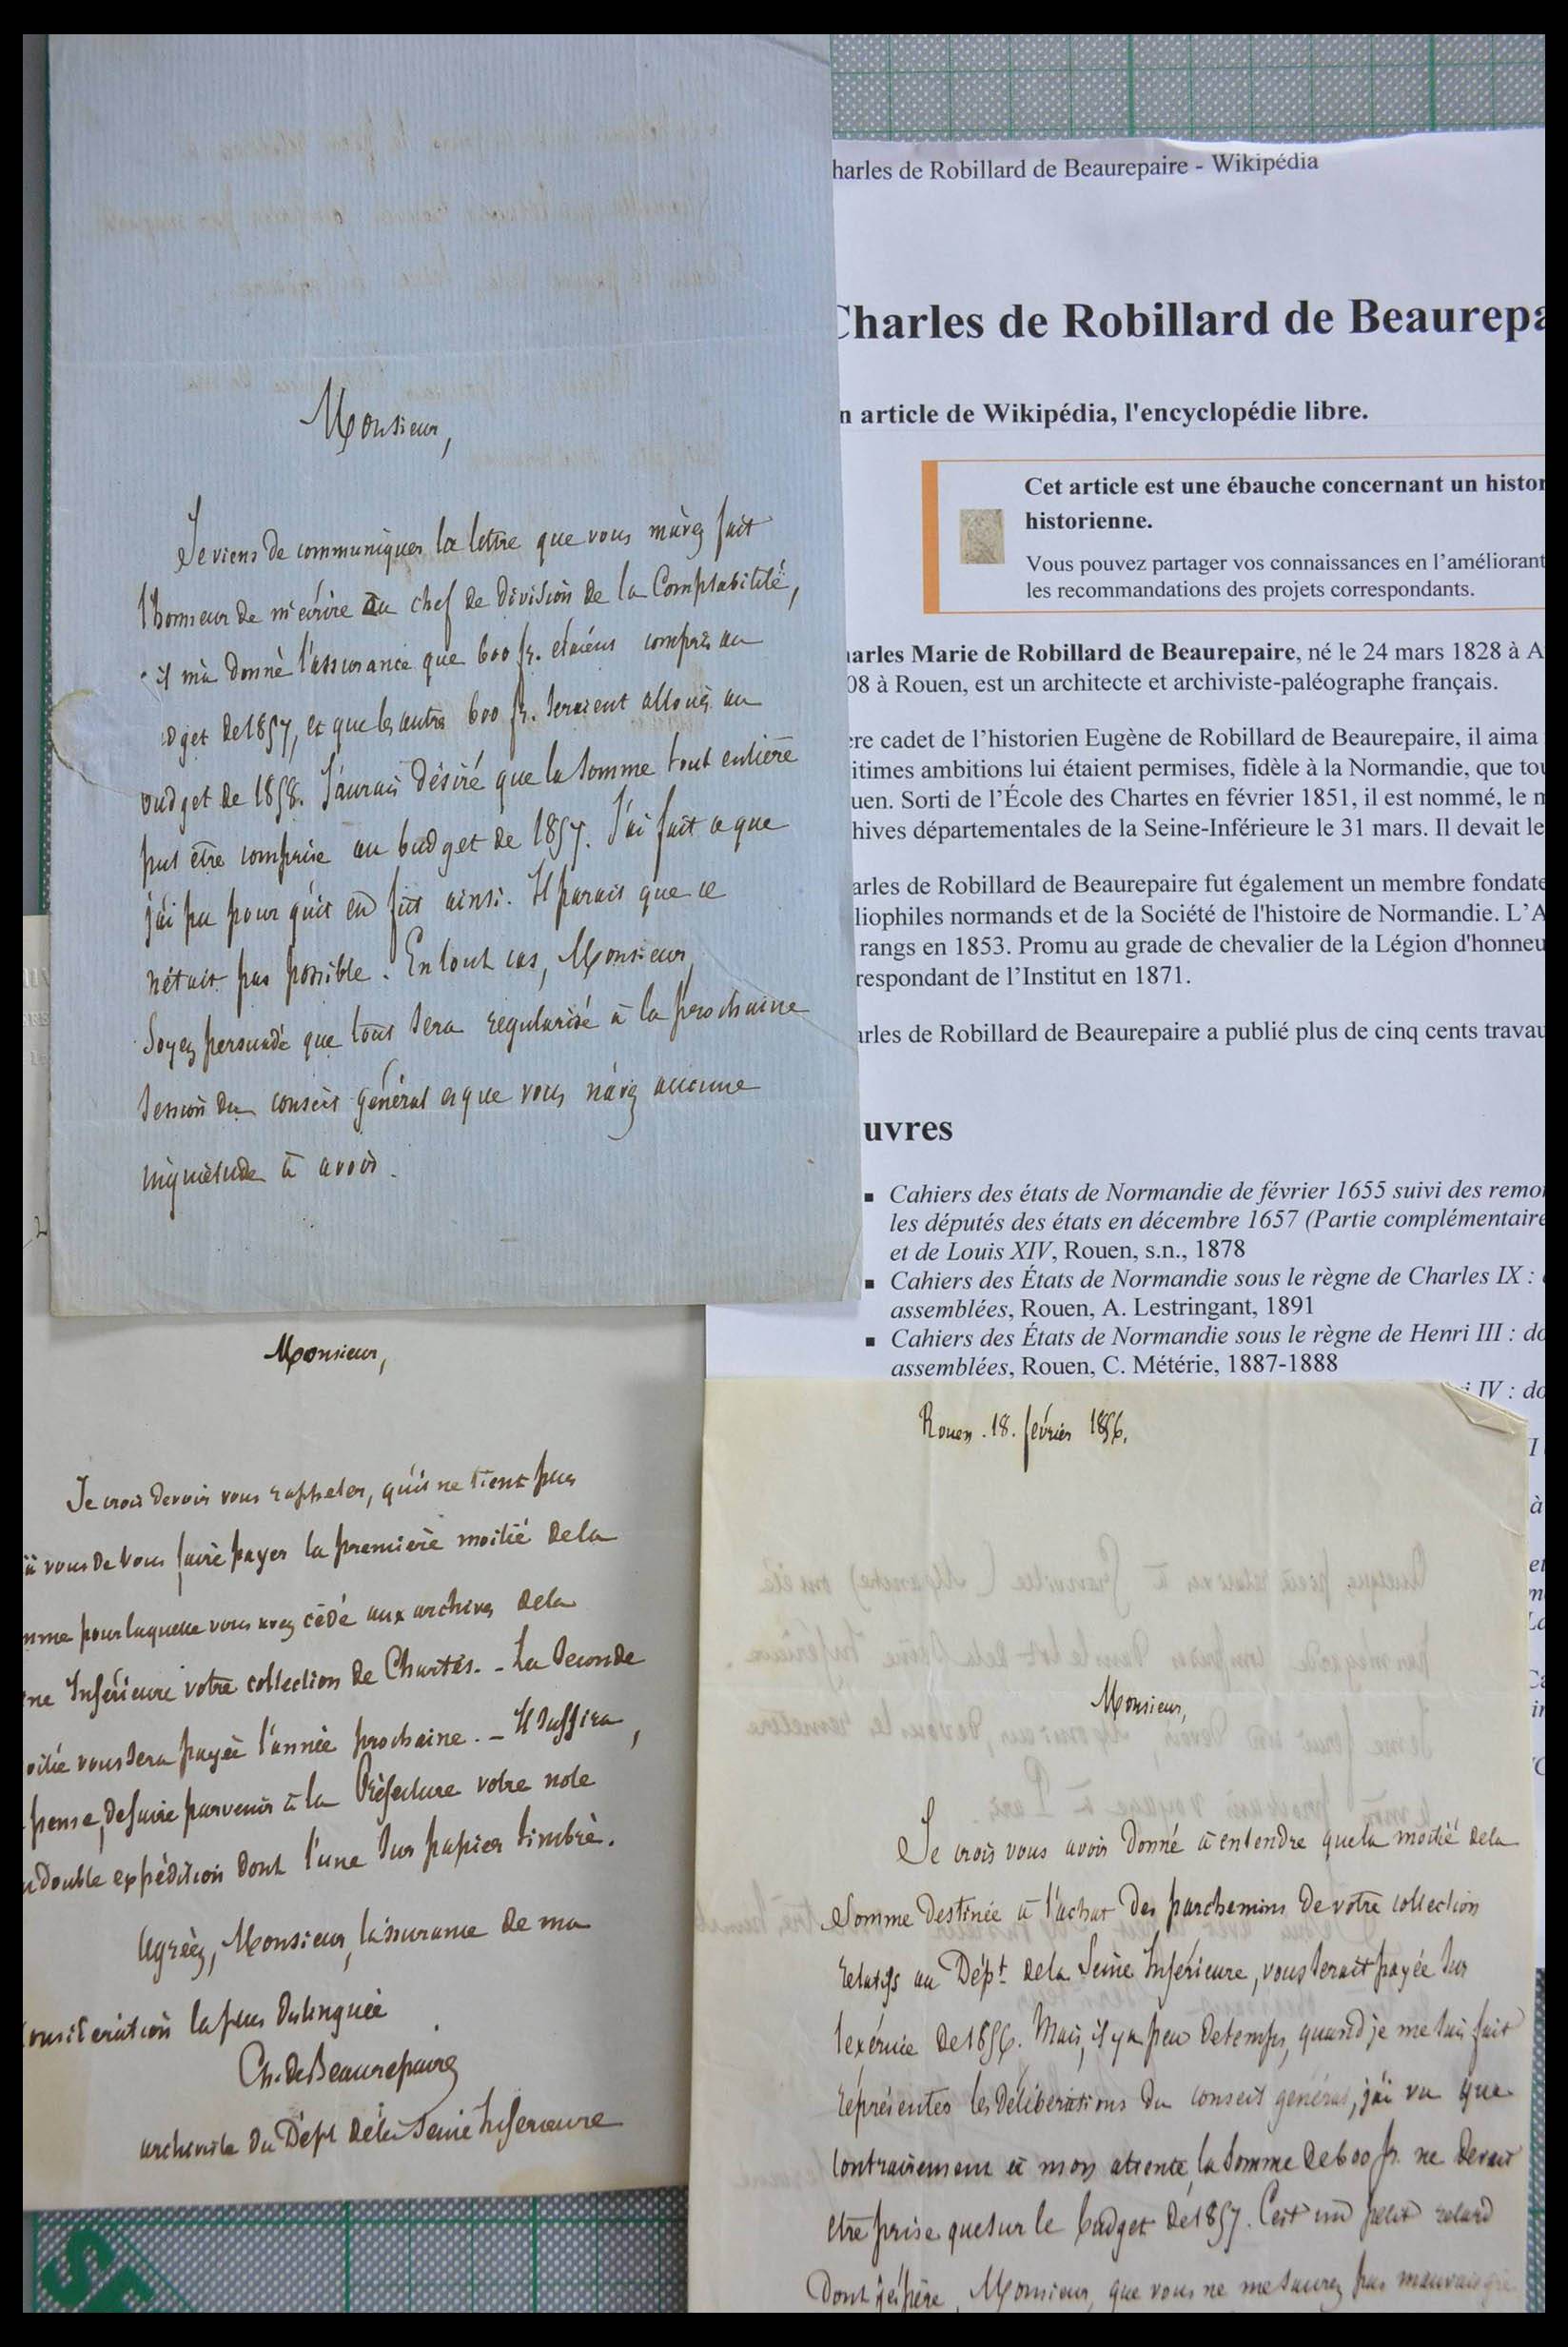 Monsieur,
Je viens de communiquer la lettre que vous m'avez fait
l'honneur de m'écrire au chef de division de la Comptabilité,
il m'a donné l'assurance que 600 fr. étaient compris au
dget de 1857, et que les autres 600 fr. seraient alloués au
budget de 1858. J'aurais désiré que la somme tout entière
put être comprise au budget de 1857. J'ai fait ce que
j'ai pu pour qu'il en fût ainsi. Il parait que ce
n'était pas possible. En tout cas, Monsieur,
Soyez persuadé que tout sera régularisé à la prochaine
session du conseil général et que vous n'avez aucune
inquiétude à avoir.
harles de Robillard de Beaurepaire - Wikipédia
Charles de Robillard de Beaurepa
n article de Wikipédia, l'encyclopédie libre.
Cet article est une ébauche concernant un histor
historienne.
Vous pouvez partager vos connaissances en l’améliorant
les recommandations des projets correspondants.
arles Marie de Robillard de Beaurepaire, né le 24 mars 1828 à A
08 à Rouen, est un architecte et archiviste-paléographe français.
re cadet de l’historien Eugène de Robillard de Beaurepaire, il aima
itimes ambitions lui étaient permises, fidèle à la Normandie, que tou
uen. Sorti de l’École des Chartes en février 1851, il est nommé, le m
hives départementales de la Seine-Inférieure le 31 mars. Il devait le
arles de Robillard de Beaurepaire fut également un membre fondate
liophiles normands et de la Société de l'histoire de Normandie. L’A
rangs en 1853. Promu au grade de chevalier de la Légion d'honneu
respondant de l’Institut en 1871.
arles de Robillard de Beaurepaire a publié plus de cinq cents travau
uvres
Cahiers des états de Normandie de février 1655 suivi des remo
les députés des états en décembre 1657 (Partie complémentaire
et de Louis XIV, Rouen, s.n., 1878
Cahiers des États de Normandie sous le règne de Charles IX :
assemblées, Rouen, A. Lestringant, 1891
Cahiers des États de Normandie sous le règne de Henri III : do
assemblées, Rouen, C. Métérie, 1887-1888
IV : do
Monsieur,
Je crois devoir vous rappeler, qu'il ne tient plus
à vous de vous faire payer la première moitié de la
mme pour laquelle vous avez cédé aux archives de la
ne Inférieure votre collection de Chartes. - La seconde
oitié vous sera payée l'année prochaine. - Il suffira,
pense, de faire parvenir à la Préfecture votre note
double expédition dont l'une sur papier timbré.
Agréez, Monsieur, l'assurance de ma
considération la plus distinguée
Ch. de Beaurepaire
archiviste du Dépt de la Seine Inférieure
Rouen. 18. février 1856.
Monsieur,
Je crois vous avoir donné à entendre que la moitié de la
somme destinée à l'achat des parchemins de votre collection
relatifs au Dépt de la Seine Inférieure, vous serait payée sur
l'exercice de 1856. Mais, il y a peu de temps, quand je me suis fait
représenter les délibérations du conseil général, j'ai vu que
contrairement à mon attente, la somme de 600 fr. ne devait
être prise que sur le budget de 1857. C'est un petit retard
dont j'espère, Monsieur, que vous ne me saurez pas mauvais gré